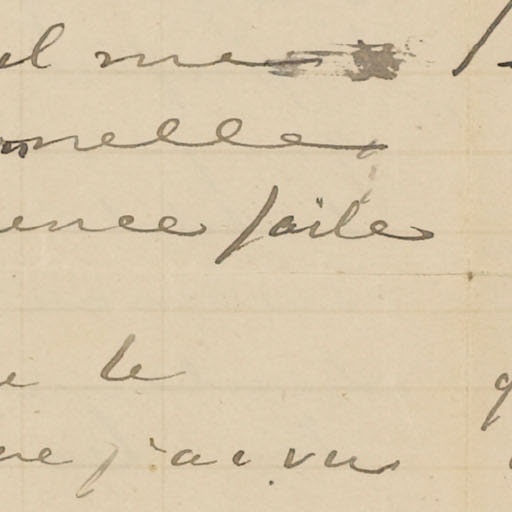 il me
nelle
ence faite
e le
ue j'ai vu